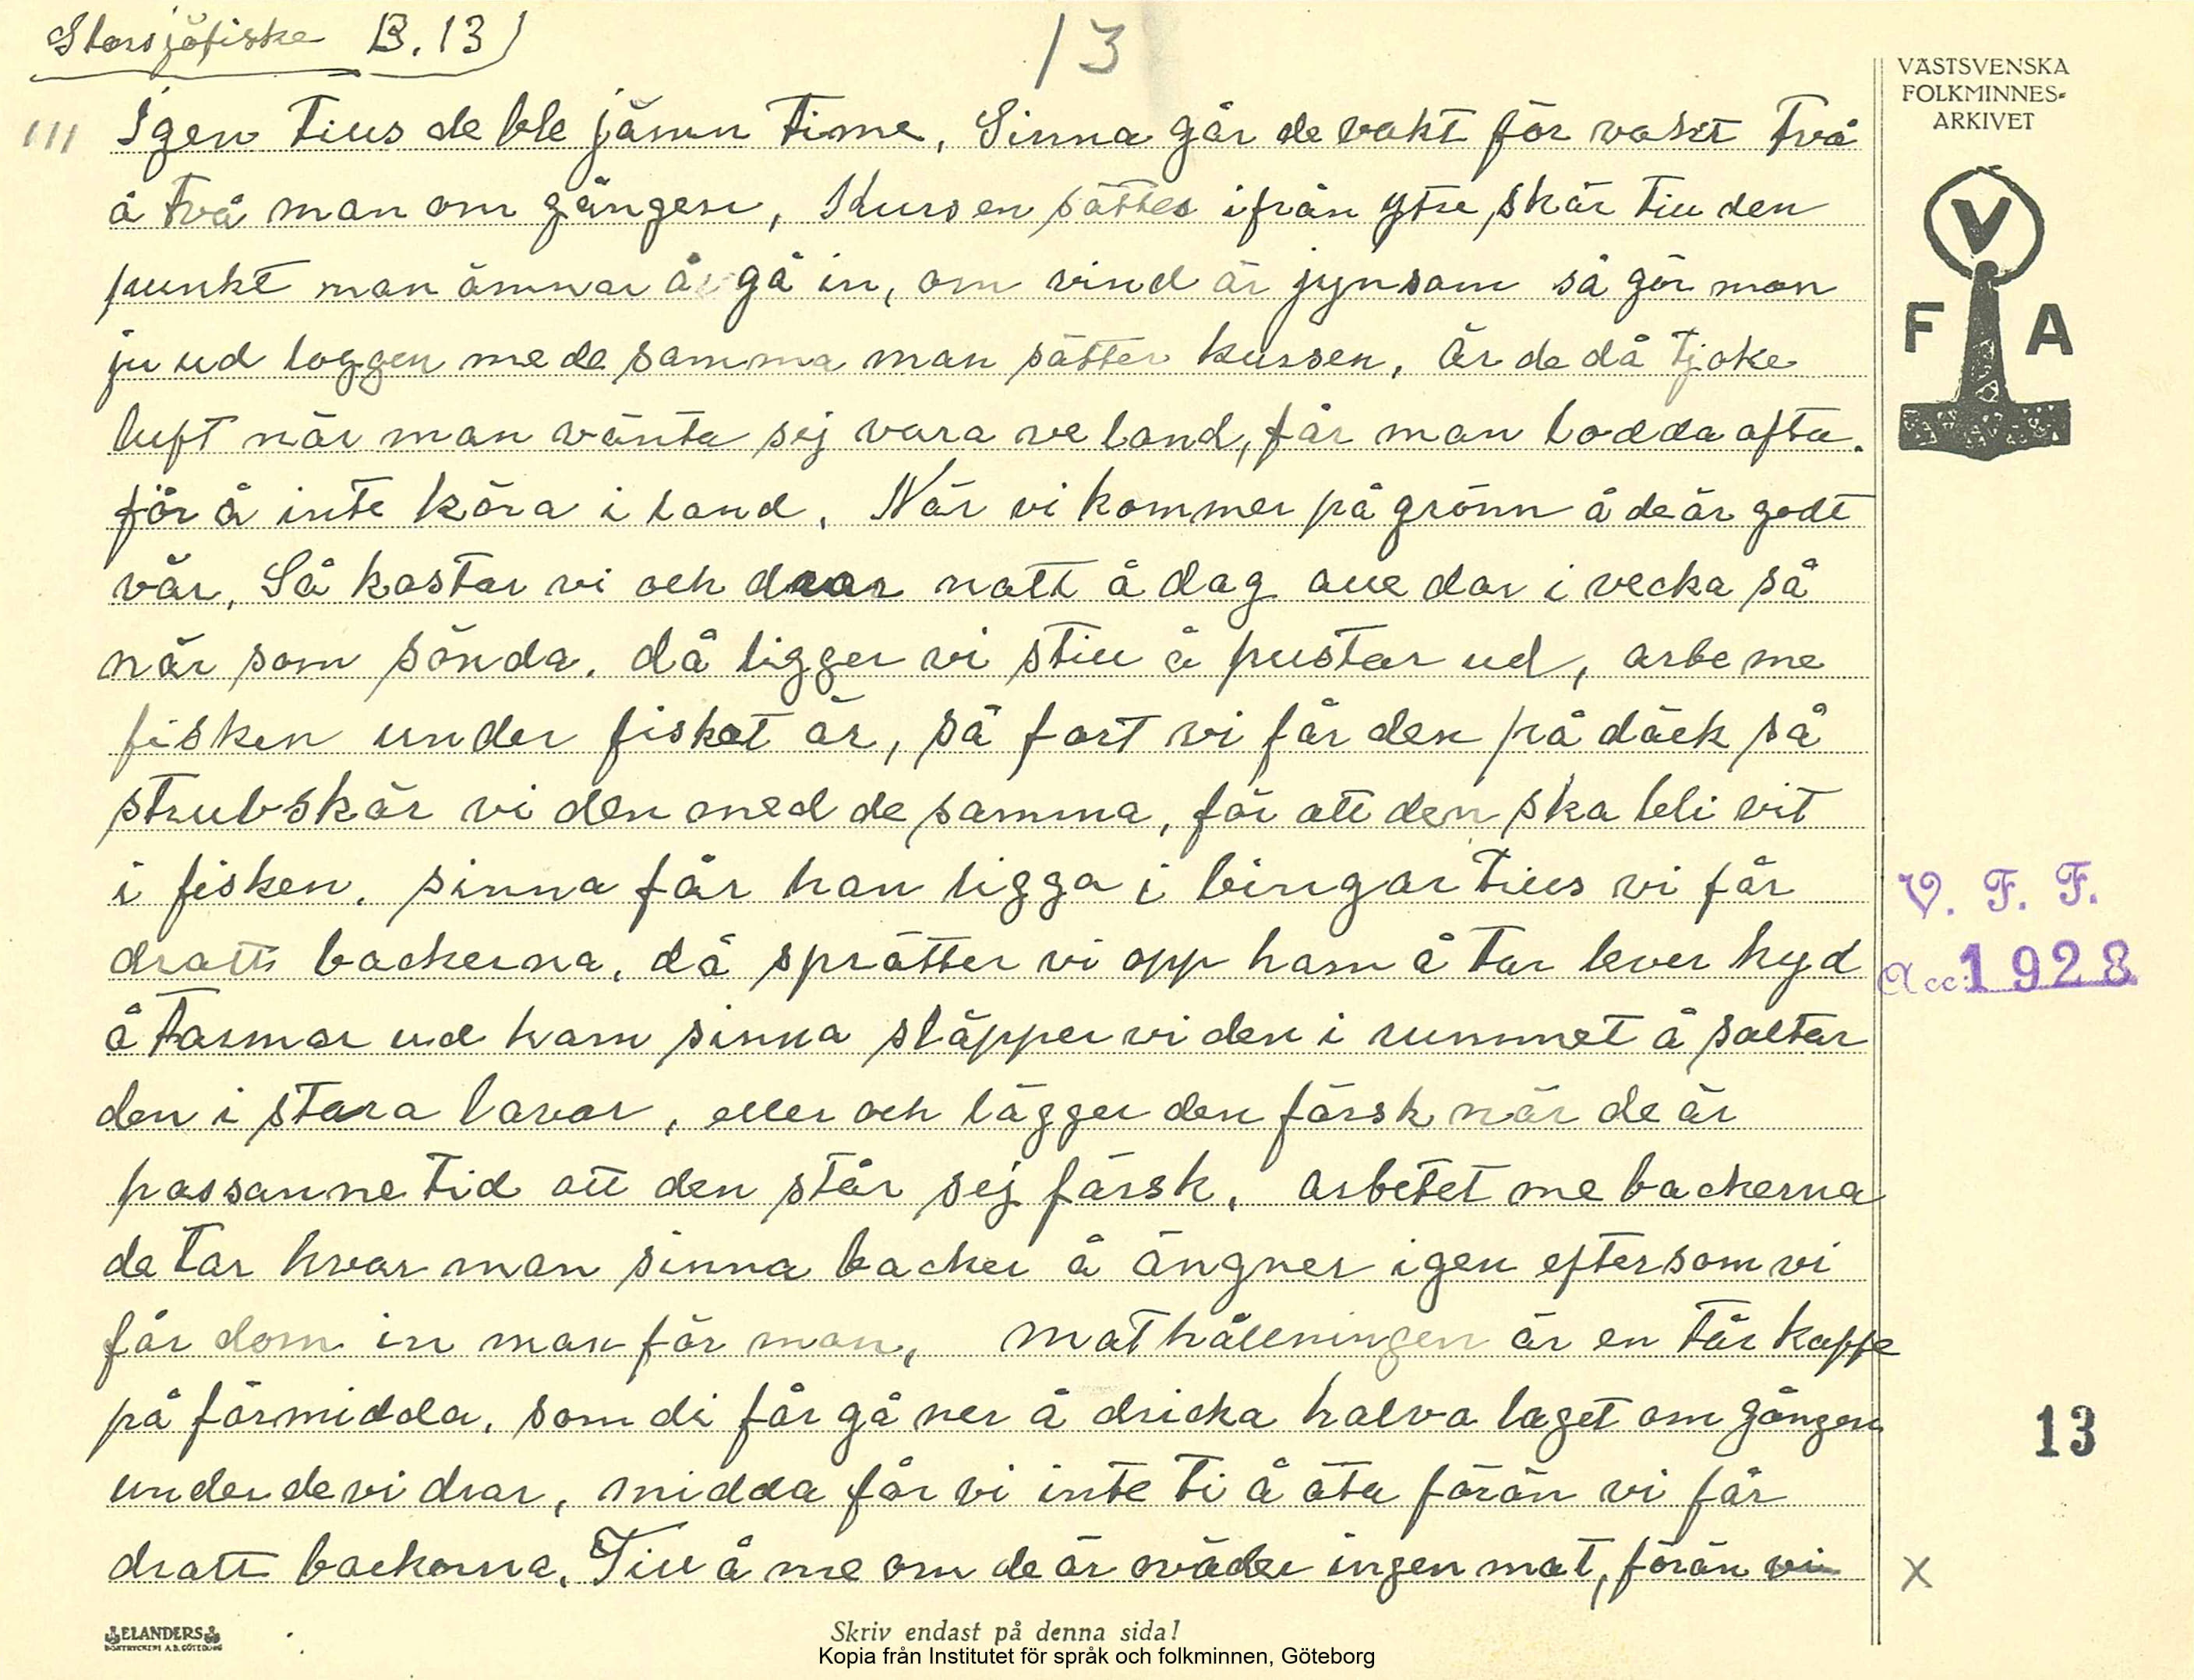 Storsjöfiske B. 13)
13
VÄSTSVENSKA
FOLKMINNES-
ARKIVET
V
F A
III
Igen tius de ble jämn time, Sinna går de vakt för vakt två
å två man om gången, Kursen sättes ifrån ytre skär till den
punkt man ämnar å gå in, om vind är jynsam så gör man
ju ud loggen me de samma man sätter kursen, är de då tjoke
luft när man vänta sej vara ve land, får man lodda ofta.
för å inte köra i land. När vi kommer på grönn å de är godt
vär. Så kastar vi och drar natt å dag alle dar i vecka så
när som sönda. då ligger vi still å pustar ud, arbe me
fisken under fisket är, så fort vi får den på däck så
strubskär vi den med de samma, för att den ska bli vit
i fisken. sinna får han ligga i bingar tills vi får
dratt backerna, då sprätter vi opp ham å tar lever kyd
å tarmar ud ham sinna släpper vi den i rummet å saltar
den i stara lavar, eller och lägger den färsk när de är
passanne tid att den står sej färsk. arbetet me backerna
de tar hvar man sinna backer å ängner igen eftersom vi
får dom in man för man, mathållningen är en tår kaffe
på förmidda, som di får gå ner å dricka halva laget om gången
under de vi drar, midda får vi inte ti å äta förän vi får
dratt backorna. Till å me om de är oväder ingen mat, förän vi
V. F. F.
Acc: 1928
13
X
ELANDERS
BOKTRYCKERI A.B. GÖTEBORG
Skriv endast på denna sida!
Kopia från Institutet för språk och folkminnen, Göteborg